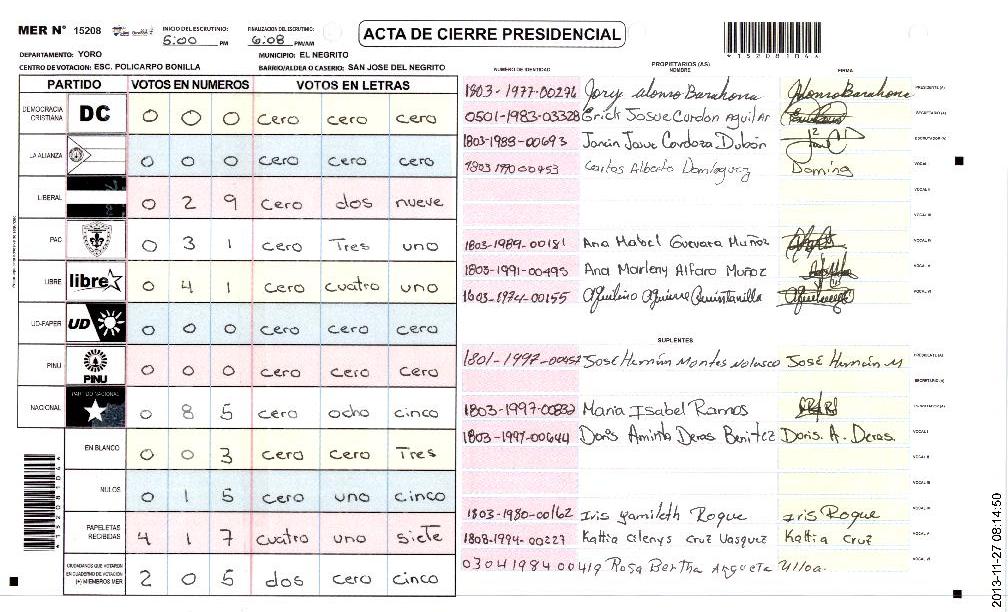 MER N° 15208 INICIO DEL ESCRUTINIO: 5:00 PM FINALIZACION DEL ESCRUTINIO: 6:08 PM/AM ACTA DE CIERRE PRESIDENCIAL *15208104*
DEPARTAMENTO: YORO MUNICIPIO: EL NEGRITO
CENTRO DE VOTACION: ESC. POLICARPO BONILLA BARRIO/ALDEA O CASERIO: SAN JOSE DEL NEGRITO
PARTIDO VOTOS EN NUMEROS VOTOS EN LETRAS
DEMOCRACIA CRISTIANA DC 0 0 0 cero cero cero
LA ALIANZA 0 0 0 cero cero cero
LIBERAL 0 2 9 cero dos nueve
PAC 0 3 1 cero Tres uno
LIBRE libre 0 4 1 cero cuatro uno
UD-FAPER UD 0 0 0 cero cero cero
PINU PINU 0 0 0 cero cero cero
NACIONAL PARTIDO NACIONAL 0 8 5 cero ocho cinco
EN BLANCO 0 0 3 cero cero Tres
NULOS 0 1 5 cero uno cinco
PAPELETAS RECIBIDAS 4 1 7 cuatro uno siete
CIUDADANOS QUE VOTARON EN CUADERNO DE VOTACION (+) MIEMBROS MER 2 0 5 dos cero cinco
PROPIETARIOS (AS)
NUMERO DE IDENTIDAD NOMBRE FIRMA
1803-1977-00276 Jory Alonso Barahona Alonso Barahona PRESIDENTE (A)
0501-1983-03328 Erick Josue Cordon Aguilar SECRETARIO (A)
1803-1983-00693 Cardoza Dubón ESCRUTADOR (A)
1803 1970 00453 Carlos Alberto Domínguez Doming VOCAL I
VOCAL II
VOCAL III
1803-1989-00181 Ana Mabel Guevara Muñoz VOCAL IV
1803-1991-00495 Ana Marleny Alfaro Muñoz VOCAL V
1603-1974-00155 Aguilino Aguirre Quintanilla VOCAL VI
SUPLENTES
1801-1997-00457 José Hernán Montes Nolasco José Hernán M PRESIDENTE (A)
SECRETARIO (A)
1803-1997-00832 Maria Isabel Ramos ESCRUTADOR (A)
1803-1997-00644 Doris Aminta Deras Benitez Doris. A. Deras. VOCAL I
VOCAL II
VOCAL III
1803-1980-00162 Iris Yamileth Roque Iris Roque VOCAL IV
1808-1994-00227 Kattia Glenys Cruz Vasquez Kattia Cruz VOCAL V
0304 1984 00419 Rosa Bertha Argueta Ulloa. VOCAL VI
*15208104*
2013-11-27 08:14:50